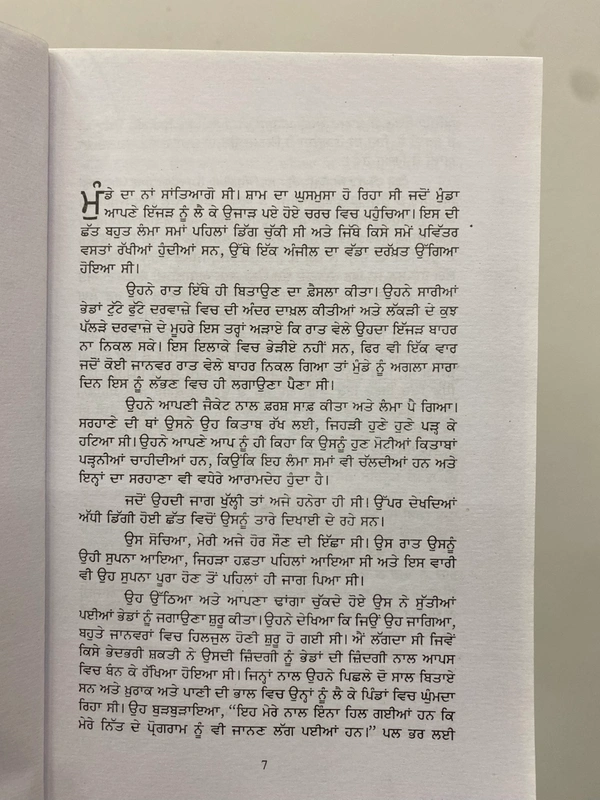 ਮੁੰਡੇ ਦਾ ਨਾਂ ਸਾਂਤਿਆਗੋ ਸੀ। ਸ਼ਾਮ ਦਾ ਘੁਸਮੁਸਾ ਹੋ ਰਿਹਾ ਸੀ ਜਦੋਂ ਮੁੰਡਾ
ਆਪਣੇ ਇੱਜੜ ਨੂੰ ਲੈ ਕੇ ਉਜਾੜ ਪਏ ਹੋਏ ਚਰਚ ਵਿਚ ਪਹੁੰਚਿਆ। ਇਸ ਦੀ
ਛੱਤ ਬਹੁਤ ਲੰਮਾ ਸਮਾਂ ਪਹਿਲਾਂ ਡਿੱਗ ਚੁੱਕੀ ਸੀ ਅਤੇ ਜਿੱਥੇ ਕਿਸੇ ਸਮੇਂ ਪਵਿੱਤਰ
ਵਸਤਾਂ ਰੱਖੀਆਂ ਹੁੰਦੀਆਂ ਸਨ, ਉੱਥੇ ਇੱਕ ਅੰਜੀਲ ਦਾ ਵੱਡਾ ਦਰਖ਼ਤ ਉੱਗਿਆ
ਹੋਇਆ ਸੀ।
ਉਹਨੇ ਰਾਤ ਇੱਥੇ ਹੀ ਬਿਤਾਉਣ ਦਾ ਫ਼ੈਸਲਾ ਕੀਤਾ। ਉਹਨੇ ਸਾਰੀਆਂ
ਭੇਡਾਂ ਟੁੱਟੇ ਫੁੱਟੇ ਦਰਵਾਜ਼ੇ ਵਿਚ ਦੀ ਅੰਦਰ ਦਾਖ਼ਲ ਕੀਤੀਆਂ ਅਤੇ ਲੱਕੜੀ ਦੇ ਕੁਝ
ਪੱਲੜੇ ਦਰਵਾਜ਼ੇ ਦੇ ਮੂਹਰੇ ਇਸ ਤਰ੍ਹਾਂ ਅੜਾਏ ਕਿ ਰਾਤ ਵੇਲੇ ਉਹਦਾ ਇੱਜੜ ਬਾਹਰ
ਨਾ ਨਿਕਲ ਸਕੇ। ਇਸ ਇਲਾਕੇ ਵਿਚ ਭੇੜੀਏ ਨਹੀਂ ਸਨ, ਫਿਰ ਵੀ ਇੱਕ ਵਾਰ
ਜਦੋਂ ਕੋਈ ਜਾਨਵਰ ਰਾਤ ਵੇਲੇ ਬਾਹਰ ਨਿਕਲ ਗਿਆ ਤਾਂ ਮੁੰਡੇ ਨੂੰ ਅਗਲਾ ਸਾਰਾ
ਦਿਨ ਇਸ ਨੂੰ ਲੱਭਣ ਵਿਚ ਹੀ ਲਗਾਉਣਾ ਪੈਣਾ ਸੀ।
ਉਹਨੇ ਆਪਣੀ ਜੈਕੇਟ ਨਾਲ ਫ਼ਰਸ਼ ਸਾਫ਼ ਕੀਤਾ ਅਤੇ ਲੰਮਾ ਪੈ ਗਿਆ।
ਸਰਹਾਣੇ ਦੀ ਥਾਂ ਉਸਨੇ ਉਹ ਕਿਤਾਬ ਰੱਖ ਲਈ, ਜਿਹੜੀ ਹੁਣੇ ਹੁਣੇ ਪੜ੍ਹ ਕੇ
ਹਟਿਆ ਸੀ। ਉਹਨੇ ਆਪਣੇ ਆਪ ਨੂੰ ਹੀ ਕਿਹਾ ਕਿ ਉਸਨੂੰ ਹੁਣ ਮੋਟੀਆਂ ਕਿਤਾਬਾਂ
ਪੜ੍ਹਨੀਆਂ ਚਾਹੀਦੀਆਂ ਹਨ, ਕਿਉਂਕਿ ਇਹ ਲੰਮਾ ਸਮਾਂ ਵੀ ਚੱਲਦੀਆਂ ਹਨ ਅਤੇ
ਇਨ੍ਹਾਂ ਦਾ ਸਰਹਾਣਾ ਵੀ ਵਧੇਰੇ ਆਰਾਮਦੇਹ ਹੁੰਦਾ ਹੈ।
ਜਦੋਂ ਉਹਦੀ ਜਾਗ ਖੁੱਲ੍ਹੀ ਤਾਂ ਅਜੇ ਹਨੇਰਾ ਹੀ ਸੀ। ਉੱਪਰ ਦੇਖਦਿਆਂ
ਅੱਧੀ ਡਿੱਗੀ ਹੋਈ ਛੱਤ ਵਿਚੋਂ ਉਸਨੂੰ ਤਾਰੇ ਦਿਖਾਈ ਦੇ ਰਹੇ ਸਨ।
ਉਸ ਸੋਚਿਆ, ਮੇਰੀ ਅਜੇ ਹੋਰ ਸੌਣ ਦੀ ਇੱਛਾ ਸੀ। ਉਸ ਰਾਤ ਉਸਨੂੰ
ਉਹੀ ਸੁਪਨਾ ਆਇਆ, ਜਿਹੜਾ ਹਫ਼ਤਾ ਪਹਿਲਾਂ ਆਇਆ ਸੀ ਅਤੇ ਇਸ ਵਾਰੀ
ਵੀ ਉਹ ਸੁਪਨਾ ਪੂਰਾ ਹੋਣ ਤੋਂ ਪਹਿਲਾਂ ਹੀ ਜਾਗ ਪਿਆ ਸੀ।
ਉਹ ਉੱਠਿਆ ਅਤੇ ਆਪਣਾ ਢਾਂਗਾ ਚੁੱਕਦੇ ਹੋਏ ਉਸ ਨੇ ਸੁੱਤੀਆਂ
ਪਈਆਂ ਭੇਡਾਂ ਨੂੰ ਜਗਾਉਣਾ ਸ਼ੁਰੂ ਕੀਤਾ। ਉਹਨੇ ਦੇਖਿਆ ਕਿ ਜਿਉਂ ਉਹ ਜਾਗਿਆ,
ਬਹੁਤੇ ਜਾਨਵਰਾਂ ਵਿਚ ਹਿਲਜੁਲ ਹੋਣੀ ਸ਼ੁਰੂ ਹੋ ਗਈ ਸੀ। ਐਂ ਲੱਗਦਾ ਸੀ ਜਿਵੇਂ
ਕਿਸੇ ਭੇਦਭਰੀ ਸ਼ਕਤੀ ਨੇ ਉਸਦੀ ਜ਼ਿੰਦਗੀ ਨੂੰ ਭੇਡਾਂ ਦੀ ਜ਼ਿੰਦਗੀ ਨਾਲ ਆਪਸ
ਵਿਚ ਬੰਨ ਕੇ ਰੱਖਿਆ ਹੋਇਆ ਸੀ। ਜਿਨ੍ਹਾਂ ਨਾਲ ਉਹਨੇ ਪਿਛਲੇ ਦੋ ਸਾਲ ਬਿਤਾਏ
ਸਨ ਅਤੇ ਖ਼ੁਰਾਕ ਅਤੇ ਪਾਣੀ ਦੀ ਭਾਲ ਵਿਚ ਉਨ੍ਹਾਂ ਨੂੰ ਲੈ ਕੇ ਪਿੰਡਾਂ ਵਿਚ ਘੁੰਮਦਾ
ਰਿਹਾ ਸੀ। ਉਹ ਬੁੜਬੁੜਾਇਆ, “ਇਹ ਮੇਰੇ ਨਾਲ ਇੰਨਾ ਹਿਲ ਗਈਆਂ ਹਨ ਕਿ
ਮੇਰੇ ਨਿੱਤ ਦੇ ਪ੍ਰੋਗਰਾਮ ਨੂੰ ਵੀ ਜਾਣਨ ਲੱਗ ਪਈਆਂ ਹਨ।” ਪਲ ਭਰ ਲਈ
7